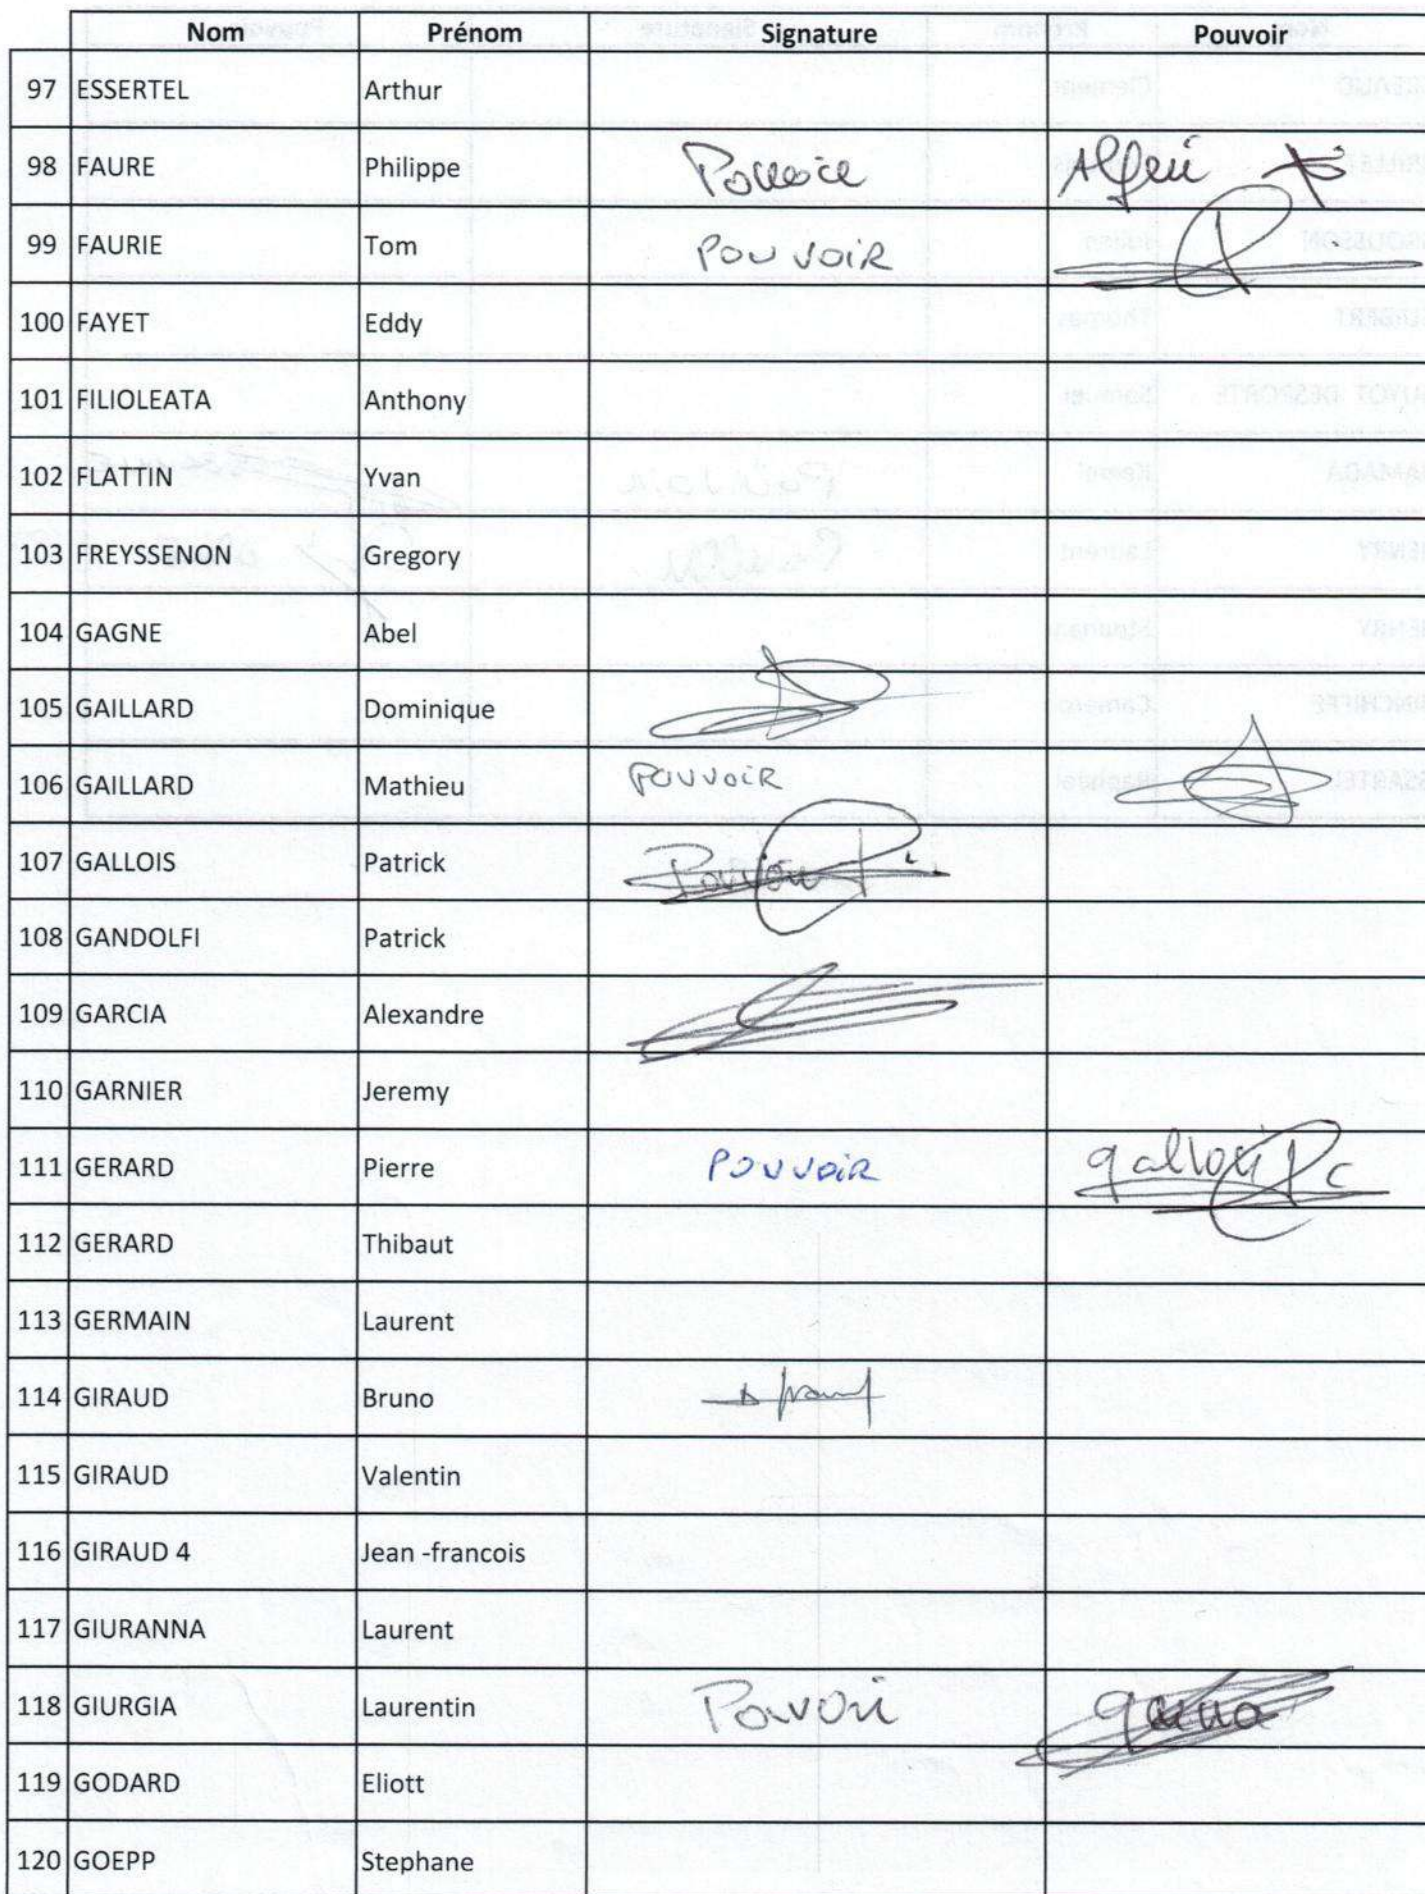 Nom Prénom Signature Pouvoir
97 ESSERTEL Arthur
98 FAURE Philippe Pouvoir
99 FAURIE Tom POUVOIR
100 FAYET Eddy
101 FILIOLEATA Anthony
102 FLATTIN Yvan
103 FREYSSENON Gregory
104 GAGNE Abel
105 GAILLARD Dominique
106 GAILLARD Mathieu POUVOIR
107 GALLOIS Patrick Pouvoir
108 GANDOLFI Patrick
109 GARCIA Alexandre
110 GARNIER Jeremy
111 GERARD Pierre POUVOIR gallois
112 GERARD Thibaut
113 GERMAIN Laurent
114 GIRAUD Bruno
115 GIRAUD Valentin
116 GIRAUD 4 Jean -francois
117 GIURANNA Laurent
118 GIURGIA Laurentin Pouvoir
119 GODARD Eliott
120 GOEPP Stephane